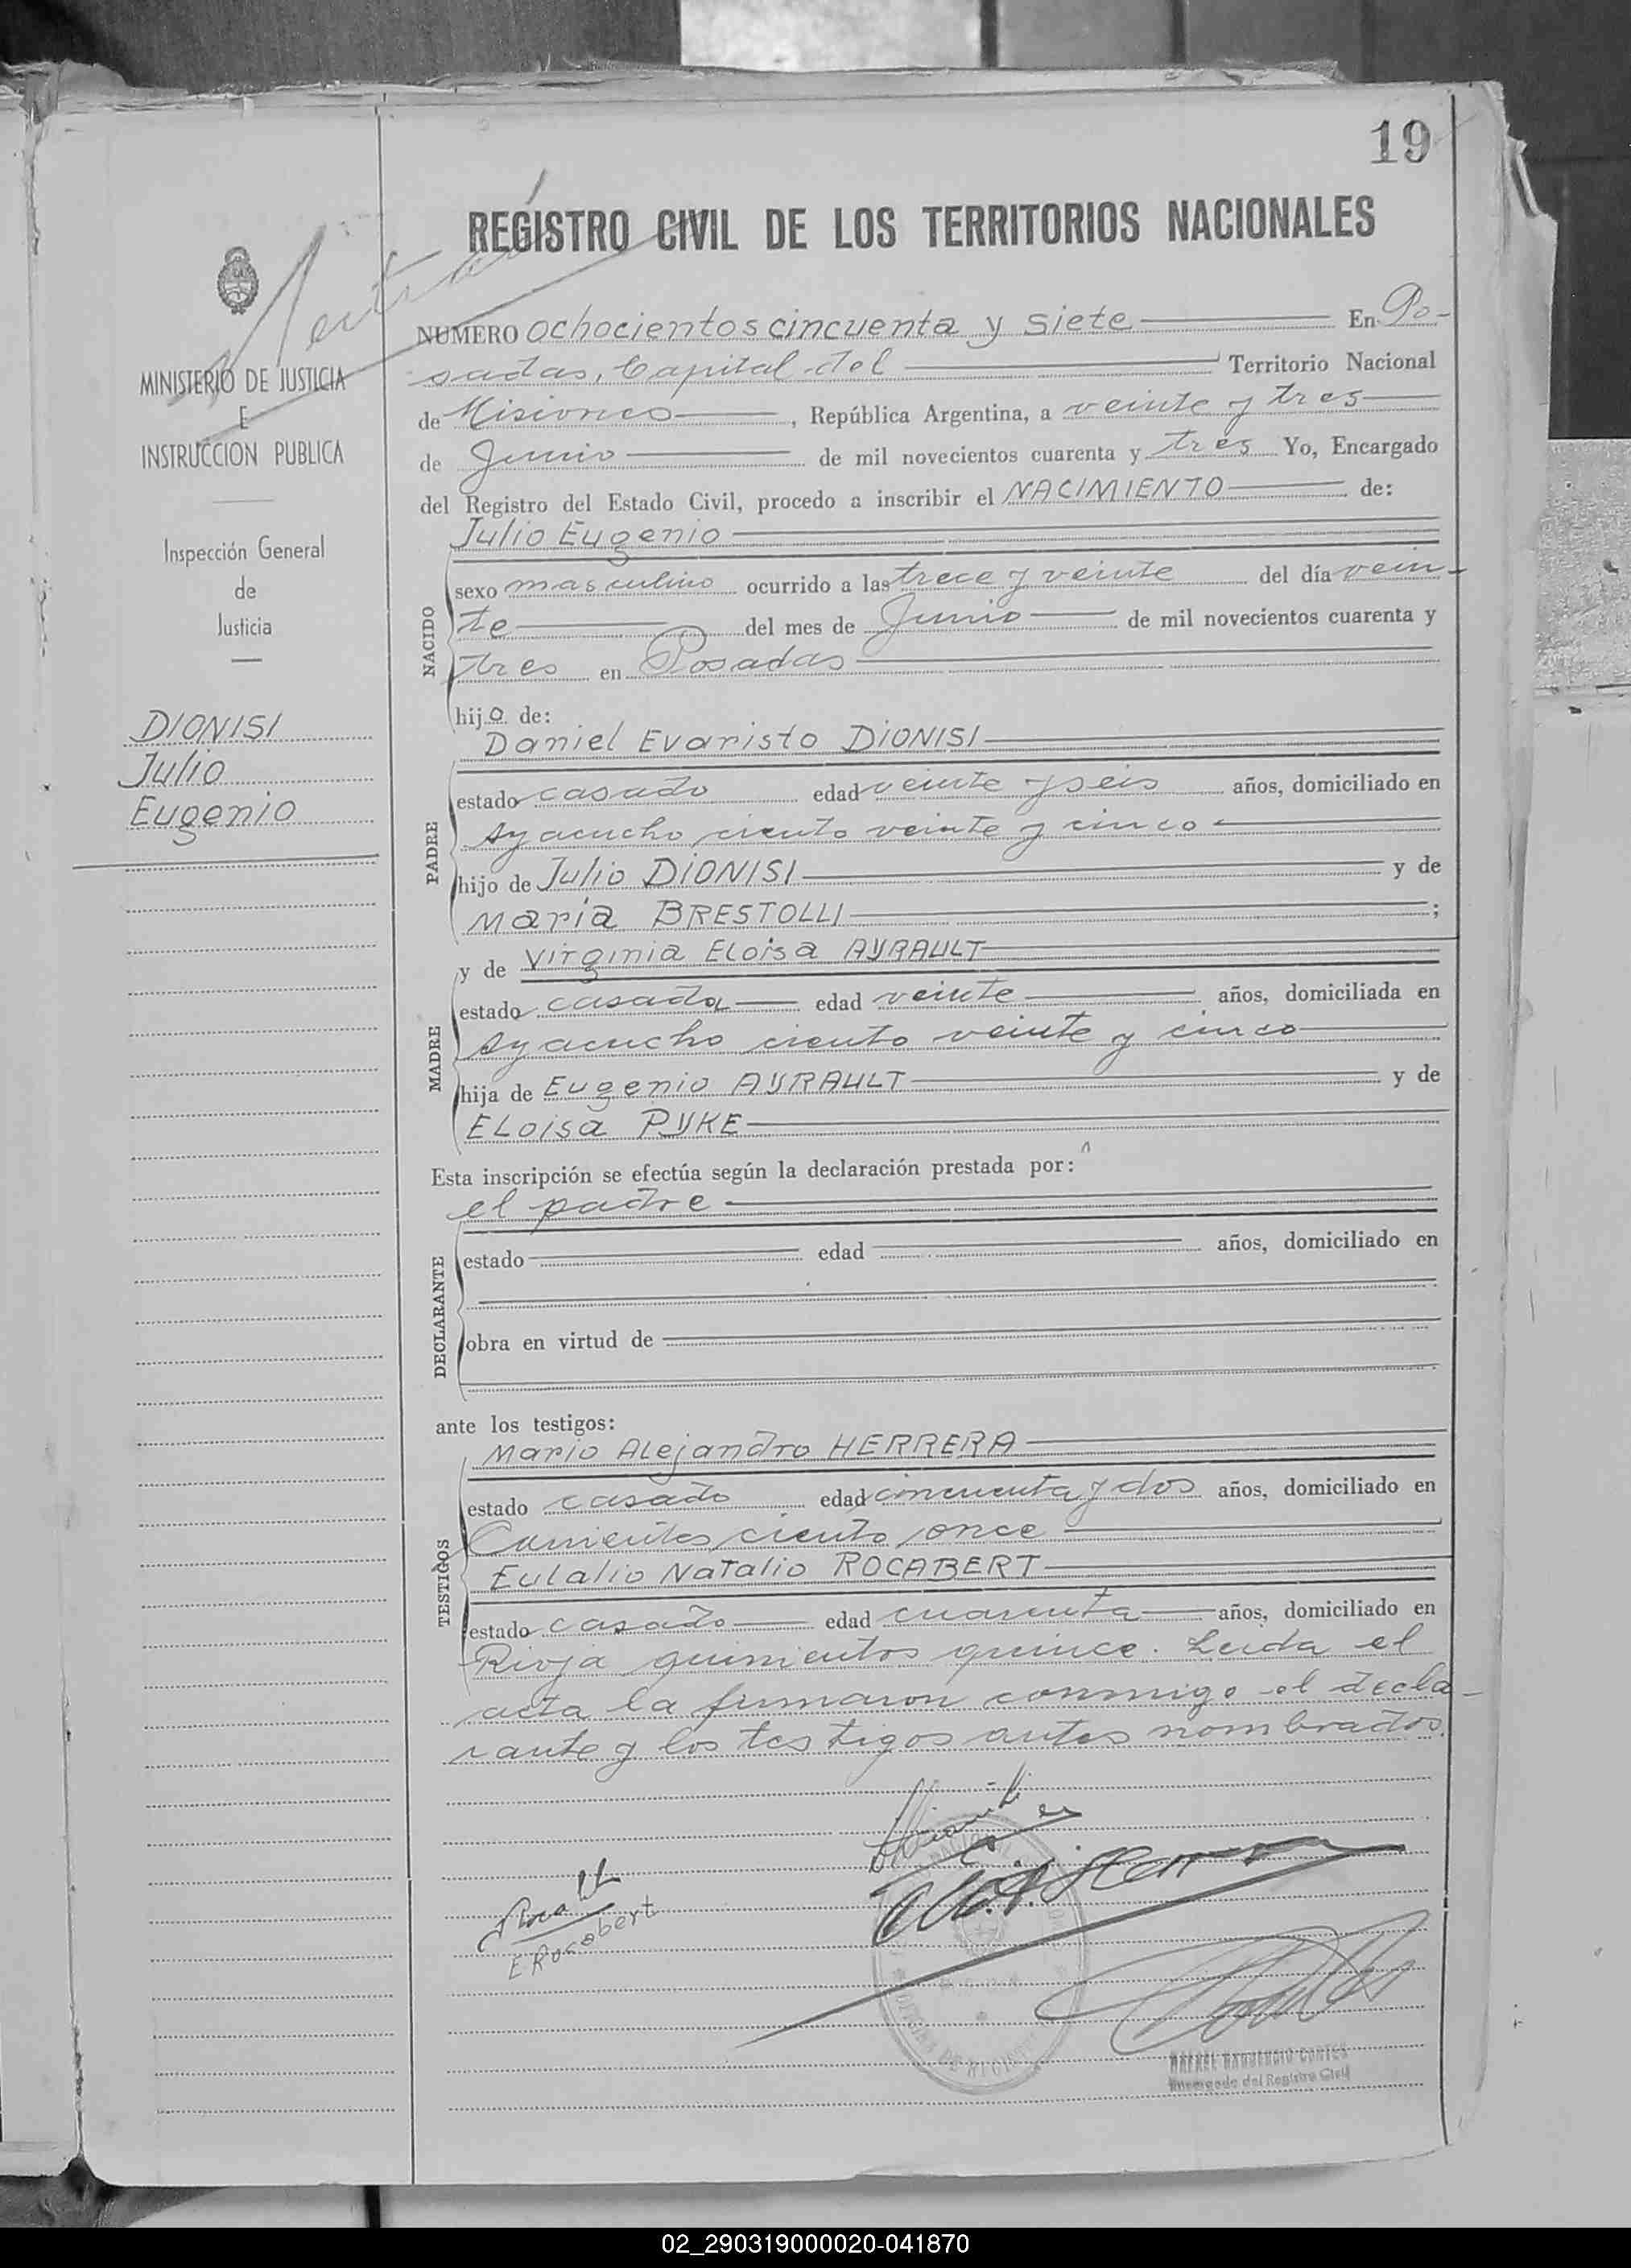 19
REGISTRO CIVIL DE LOS TERRITORIOS NACIONALES
MINISTERIO DE JUSTICIA
E
INSTRUCCION PUBLICA
Inspección General
de
Justicia
DIONISI
Julio
Eugenio
NUMERO ochocientos cincuenta y siete En Po-
sadas, Capital del Territorio Nacional
de Misiones, República Argentina, a veinte y tres
de Junio de mil novecientos cuarenta y tres Yo, Encargado
del Registro del Estado Civil, procedo a inscribir el NACIMIENTO de:
Julio Eugenio
NACIDO
sexo masculino ocurrido a las trece y veinte del día vein-
te del mes de Junio de mil novecientos cuarenta y
tres en Posadas
hijo de:
Daniel Evaristo DIONISI
PADRE
estado casado edad veinte y seis años, domiciliado en
Ayacucho ciento veinte y cinco
hijo de Julio DIONISI y de
María BRESTOLLI;
y de Virginia Eloisa AYRAULT
MADRE
estado casada edad veinte años, domiciliada en
Ayacucho ciento veinte y cinco
hija de Eugenio AYRAULT y de
ELoisa PYKE
Esta inscripción se efectúa según la declaración prestada por:
el padre
DECLARANTE
estado edad años, domiciliado en
obra en virtud de
ante los testigos:
Mario Alejandro HERRERA
TESTIGOS
estado casado edad cincuenta y dos años, domiciliado en
Corrientes ciento once
Eulalio Natalio ROCABERT
estado casado edad cuarenta años, domiciliado en
Rioja quinientos quince. Leida el
acta la firmaron conmigo el decla-
rante y los testigos antes nombrados.
E Rocabert
Encargado del Registro Civil
02_290319000020-041870